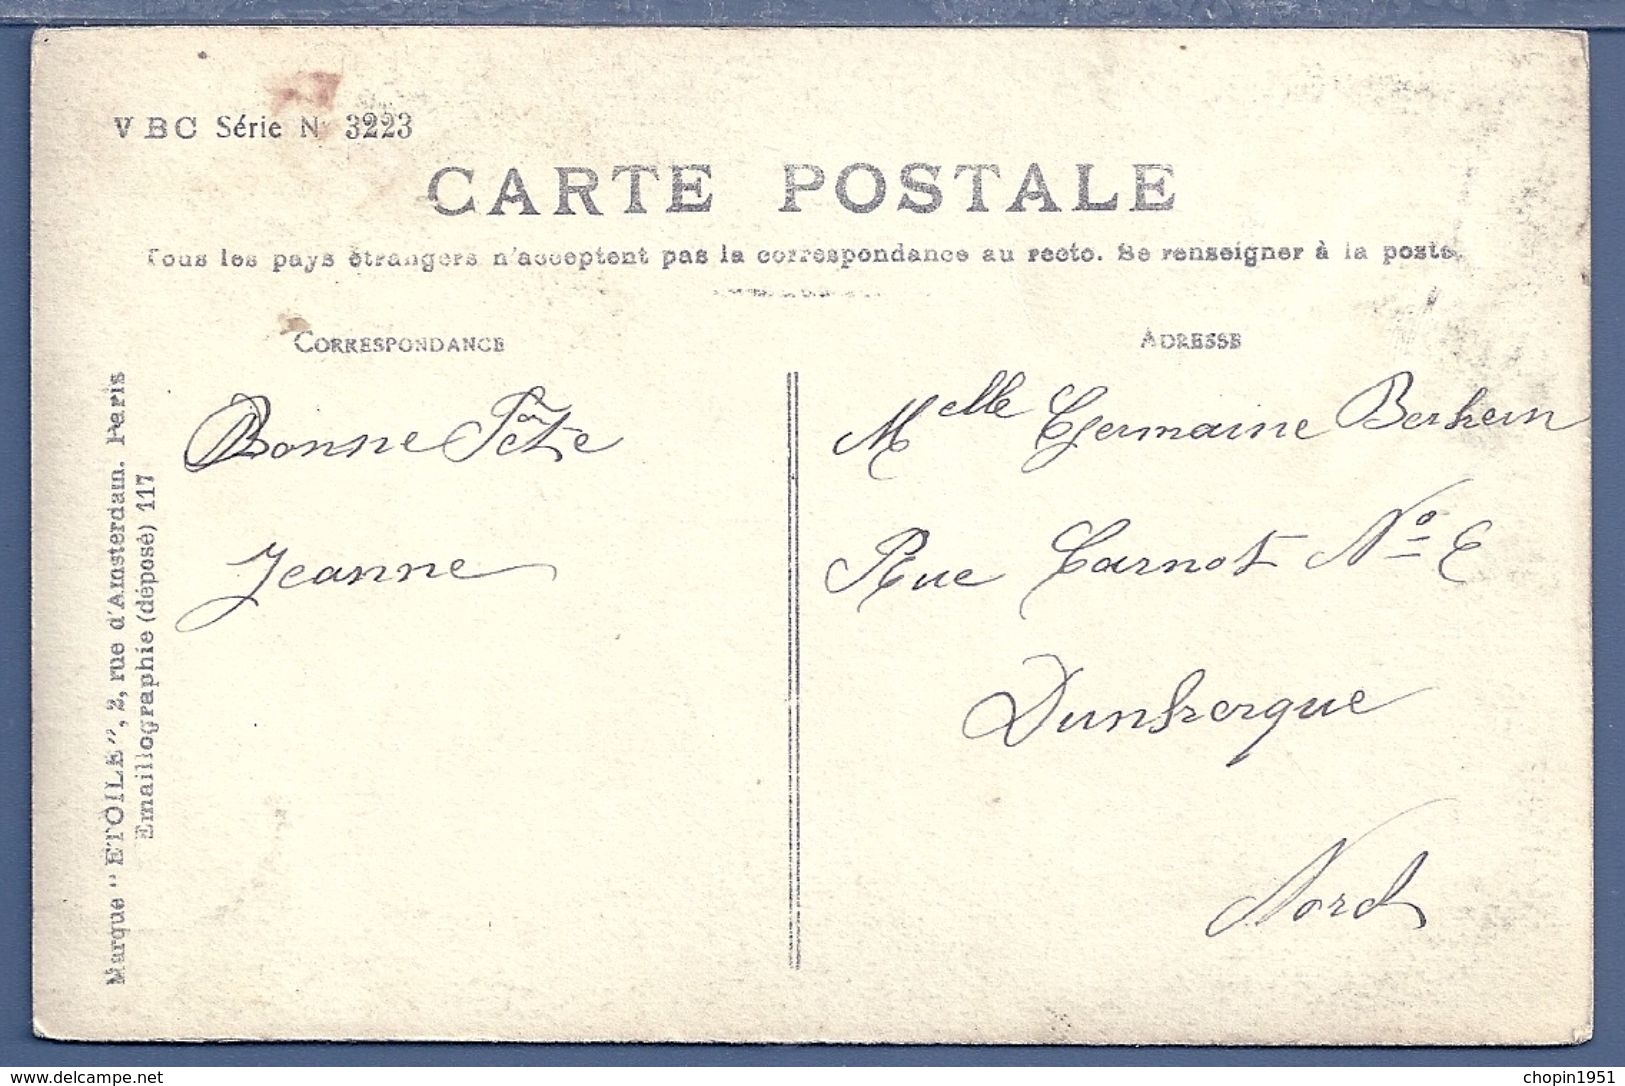 V B C Série N° 3223
CARTE POSTALE
Tous les pays étrangers n'acceptent pas la correspondance au recto. Se renseigner à la poste.
CORRESPONDANCE
Bonne Fête
Jeanne
ADRESSE
Melle Germaine
Rue Carnot No
Dunkerque
Nord
Marque "ETOILE", 2, rue d'Amsterdam. Paris
Emaillographie (déposé) 117
delcampe.net
chopin1951